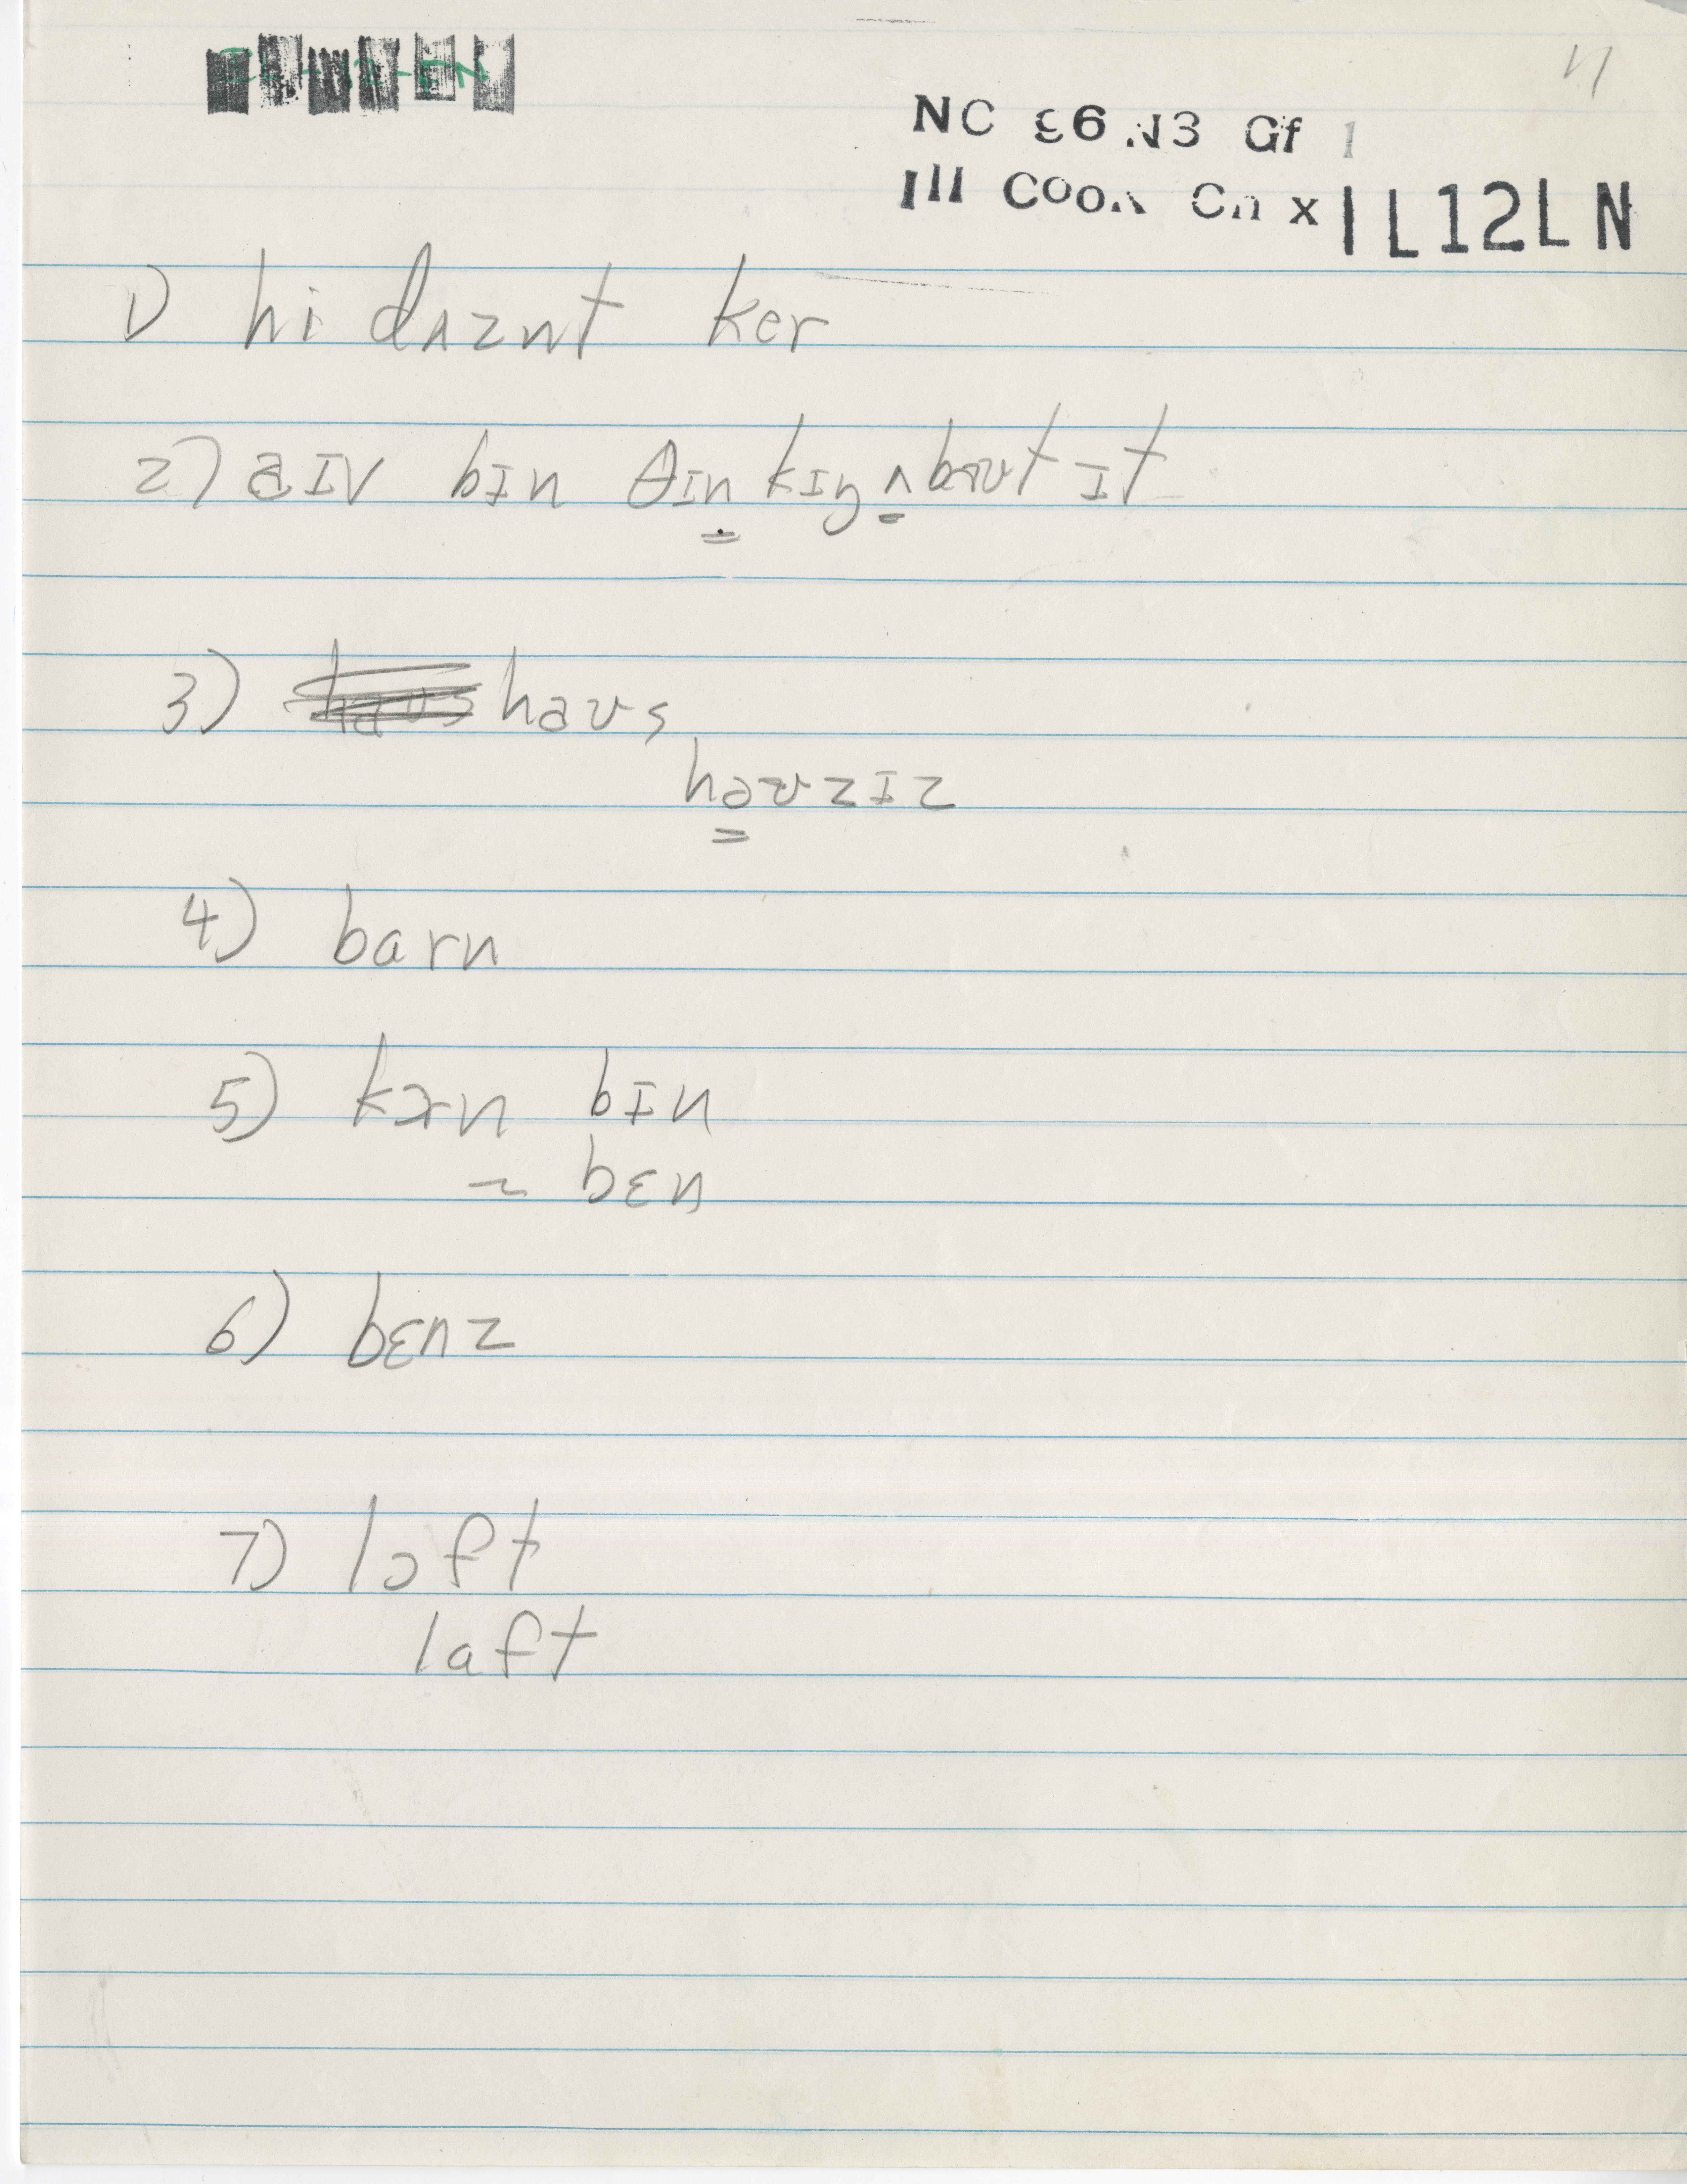 NC 86 N3 Gf 1
Ill Cook Ch x IL12LN
1) hi dʌznt ker
2) aɪv bɪn θɪnkɪŋ ʌbaʊt ɪt
3) haʊs
haʊzɪz
4) barn
5) kɔrn bɪn
~ bɛn
6) bɛnz
7) lɔft
laft